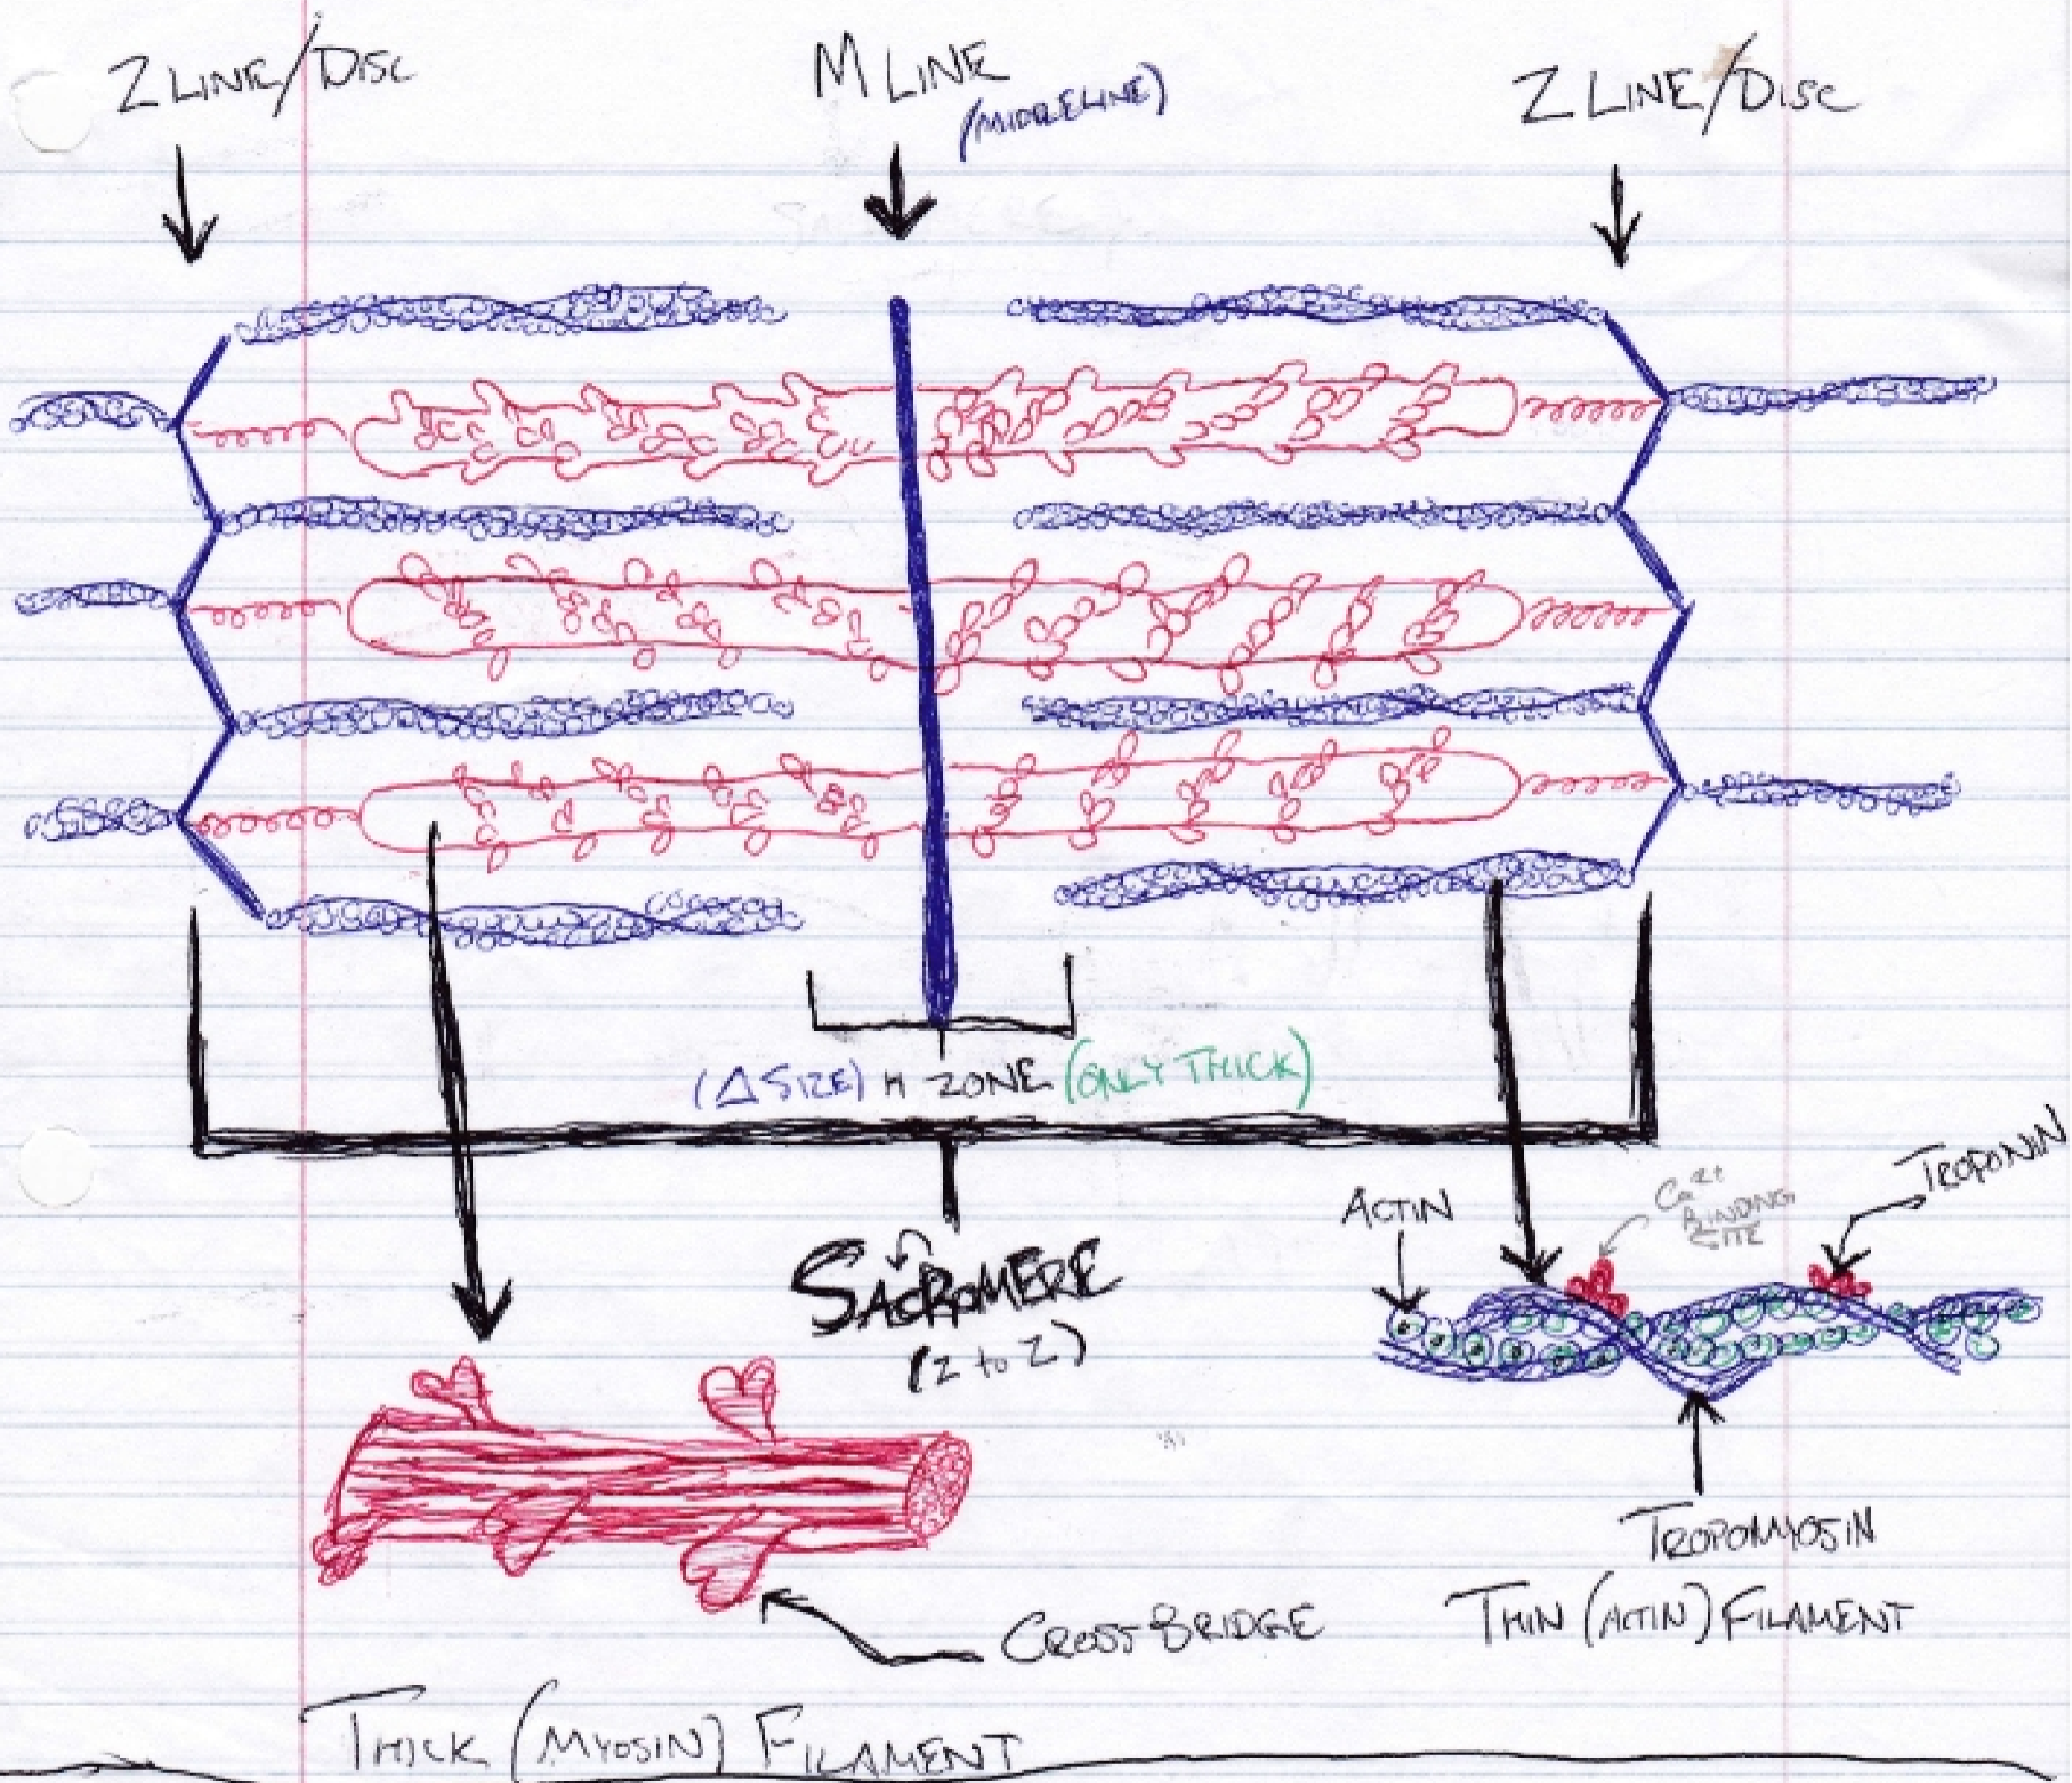 Z LINE/DISC
M LINE
(MIDDLELINE)
Z LINE/DISC
(Δ SIZE) H ZONE (ONLY THICK)
SACROMERE
(Z to Z)
ACTIN
Ca2+
BINDING
SITE
TROPONIN
TROPOMYOSIN
THIN (ACTIN) FILAMENT
CROSS BRIDGE
THICK (MYOSIN) FILAMENT